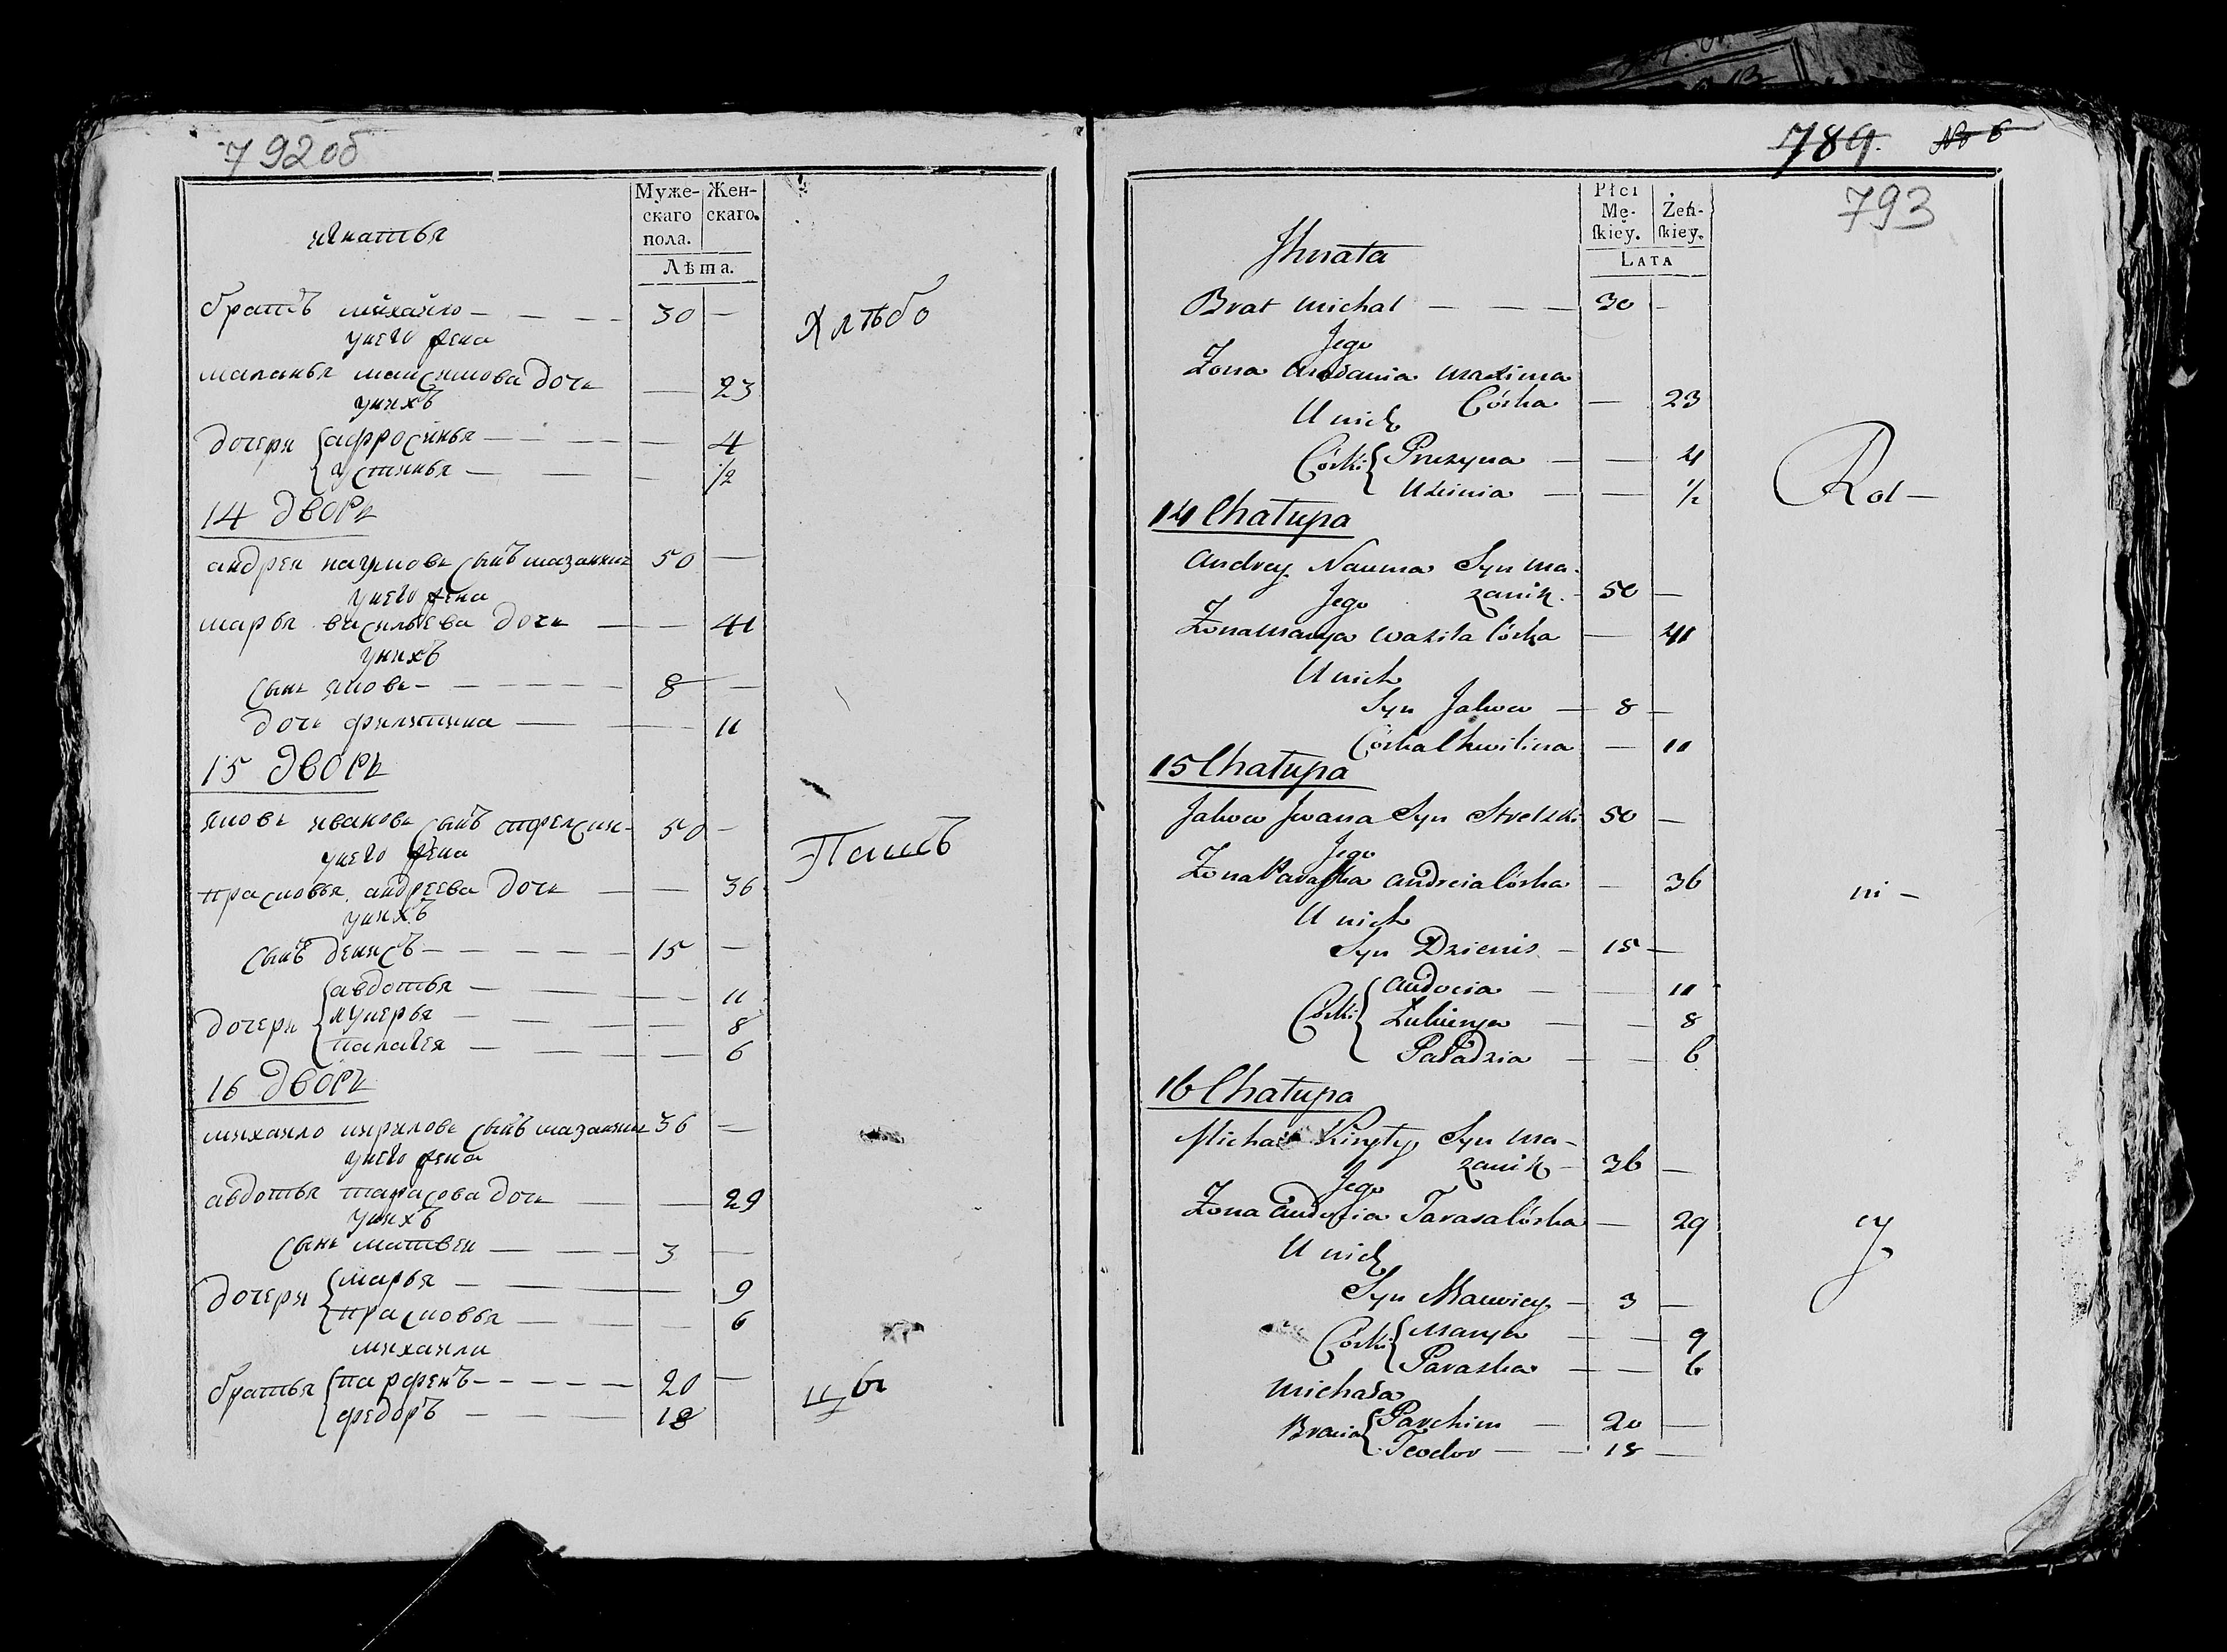 792об
Муже- Жен-
скаго скаго.
пола.
Лѣта.
игнатья
братъ михайло — 30 —
унего жена
маланья максимова дочь — 23
унихъ
дочери { афросинья — 4
устинья — 1/2
Хлѣбо
14 дворъ
андреи наумовъ сынъ мазаник 50 —
унего жена
марья васильева дочь — 41
унихъ
сынъ яковъ — 8 —
дочь филитина — 11
15 дворъ
яковъ ивановъ сынъ 50 —
унего жена
прасковья андреева дочь — 36
унихъ
Пашъ
сынъ денисъ — 15 —
дочери { авдотья — 11
лукерья — 8
палагея — 6
16 дворъ
михаило кириловъ сынъ мазаник 36 —
унего жена
авдотья тарасова дочь — 29
унихъ
сынъ матвеи — 3 —
дочери { марья — 9
прасковья — 6
михаила
братья { парфенъ — 20 —
федоръ — 18
цы
789. № 6
793
Płci
Mę- Żeń-
ſkiey. ſkiey.
LATA
Jhnata
Brat Michał — 30 —
Jego
Żona Maxima
Córka — 23
U nich
Córki { Pruzyna — 4
Uscinia — 1/2
Rol-
14 Chałupa
Andrey Nauma Syn Ma-
zanik. 50 —
Jego
Żona Marya Wasila Córka — 41
U nich
Syn Jakow — 8 —
Córka Chwilina — 11
15 Chałupa
Jakow Jwana Syn Strelzki 50 —
Jego
Żona Paraska Andreia Córka — 36
U nich
ni-
Syn Dzienis — 15 —
Córki { Audocia — 11
Łukierya — 8
Paładzia — 6
16 Chałupa
Michał Kiryły Syn Ma-
zanik — 36 —
Jego
Żona Audocia Tarasa Córka — 29
U nich
cy
Syn Mauwiey — 3 —
Córki { Marya — 9
Paraska — 6
Michała
Bracia { Parchim — 20 —
Teodor — 18 —